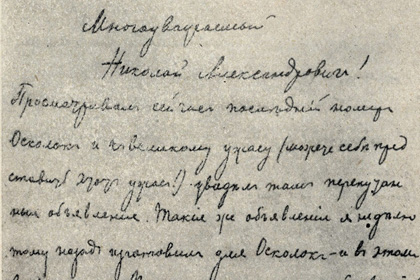 Многоуважаемый
Николай Александрович!
Просматривал сейчас последній номер
Осколок и к великому ужасу (можете себе пред
ставить этот ужас!) увидел там перепутан
ныя объявления. Такие же объявления я неделю
тому назад изготовил для Осколок – и в этом